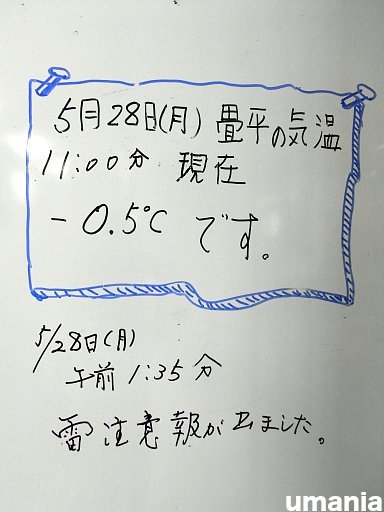 5月28日(月) 畳平の気温
11:00分 現在
-0.5℃ です。
5/28日(月)
午前 1:35分
雷注意報が出ました。
umania